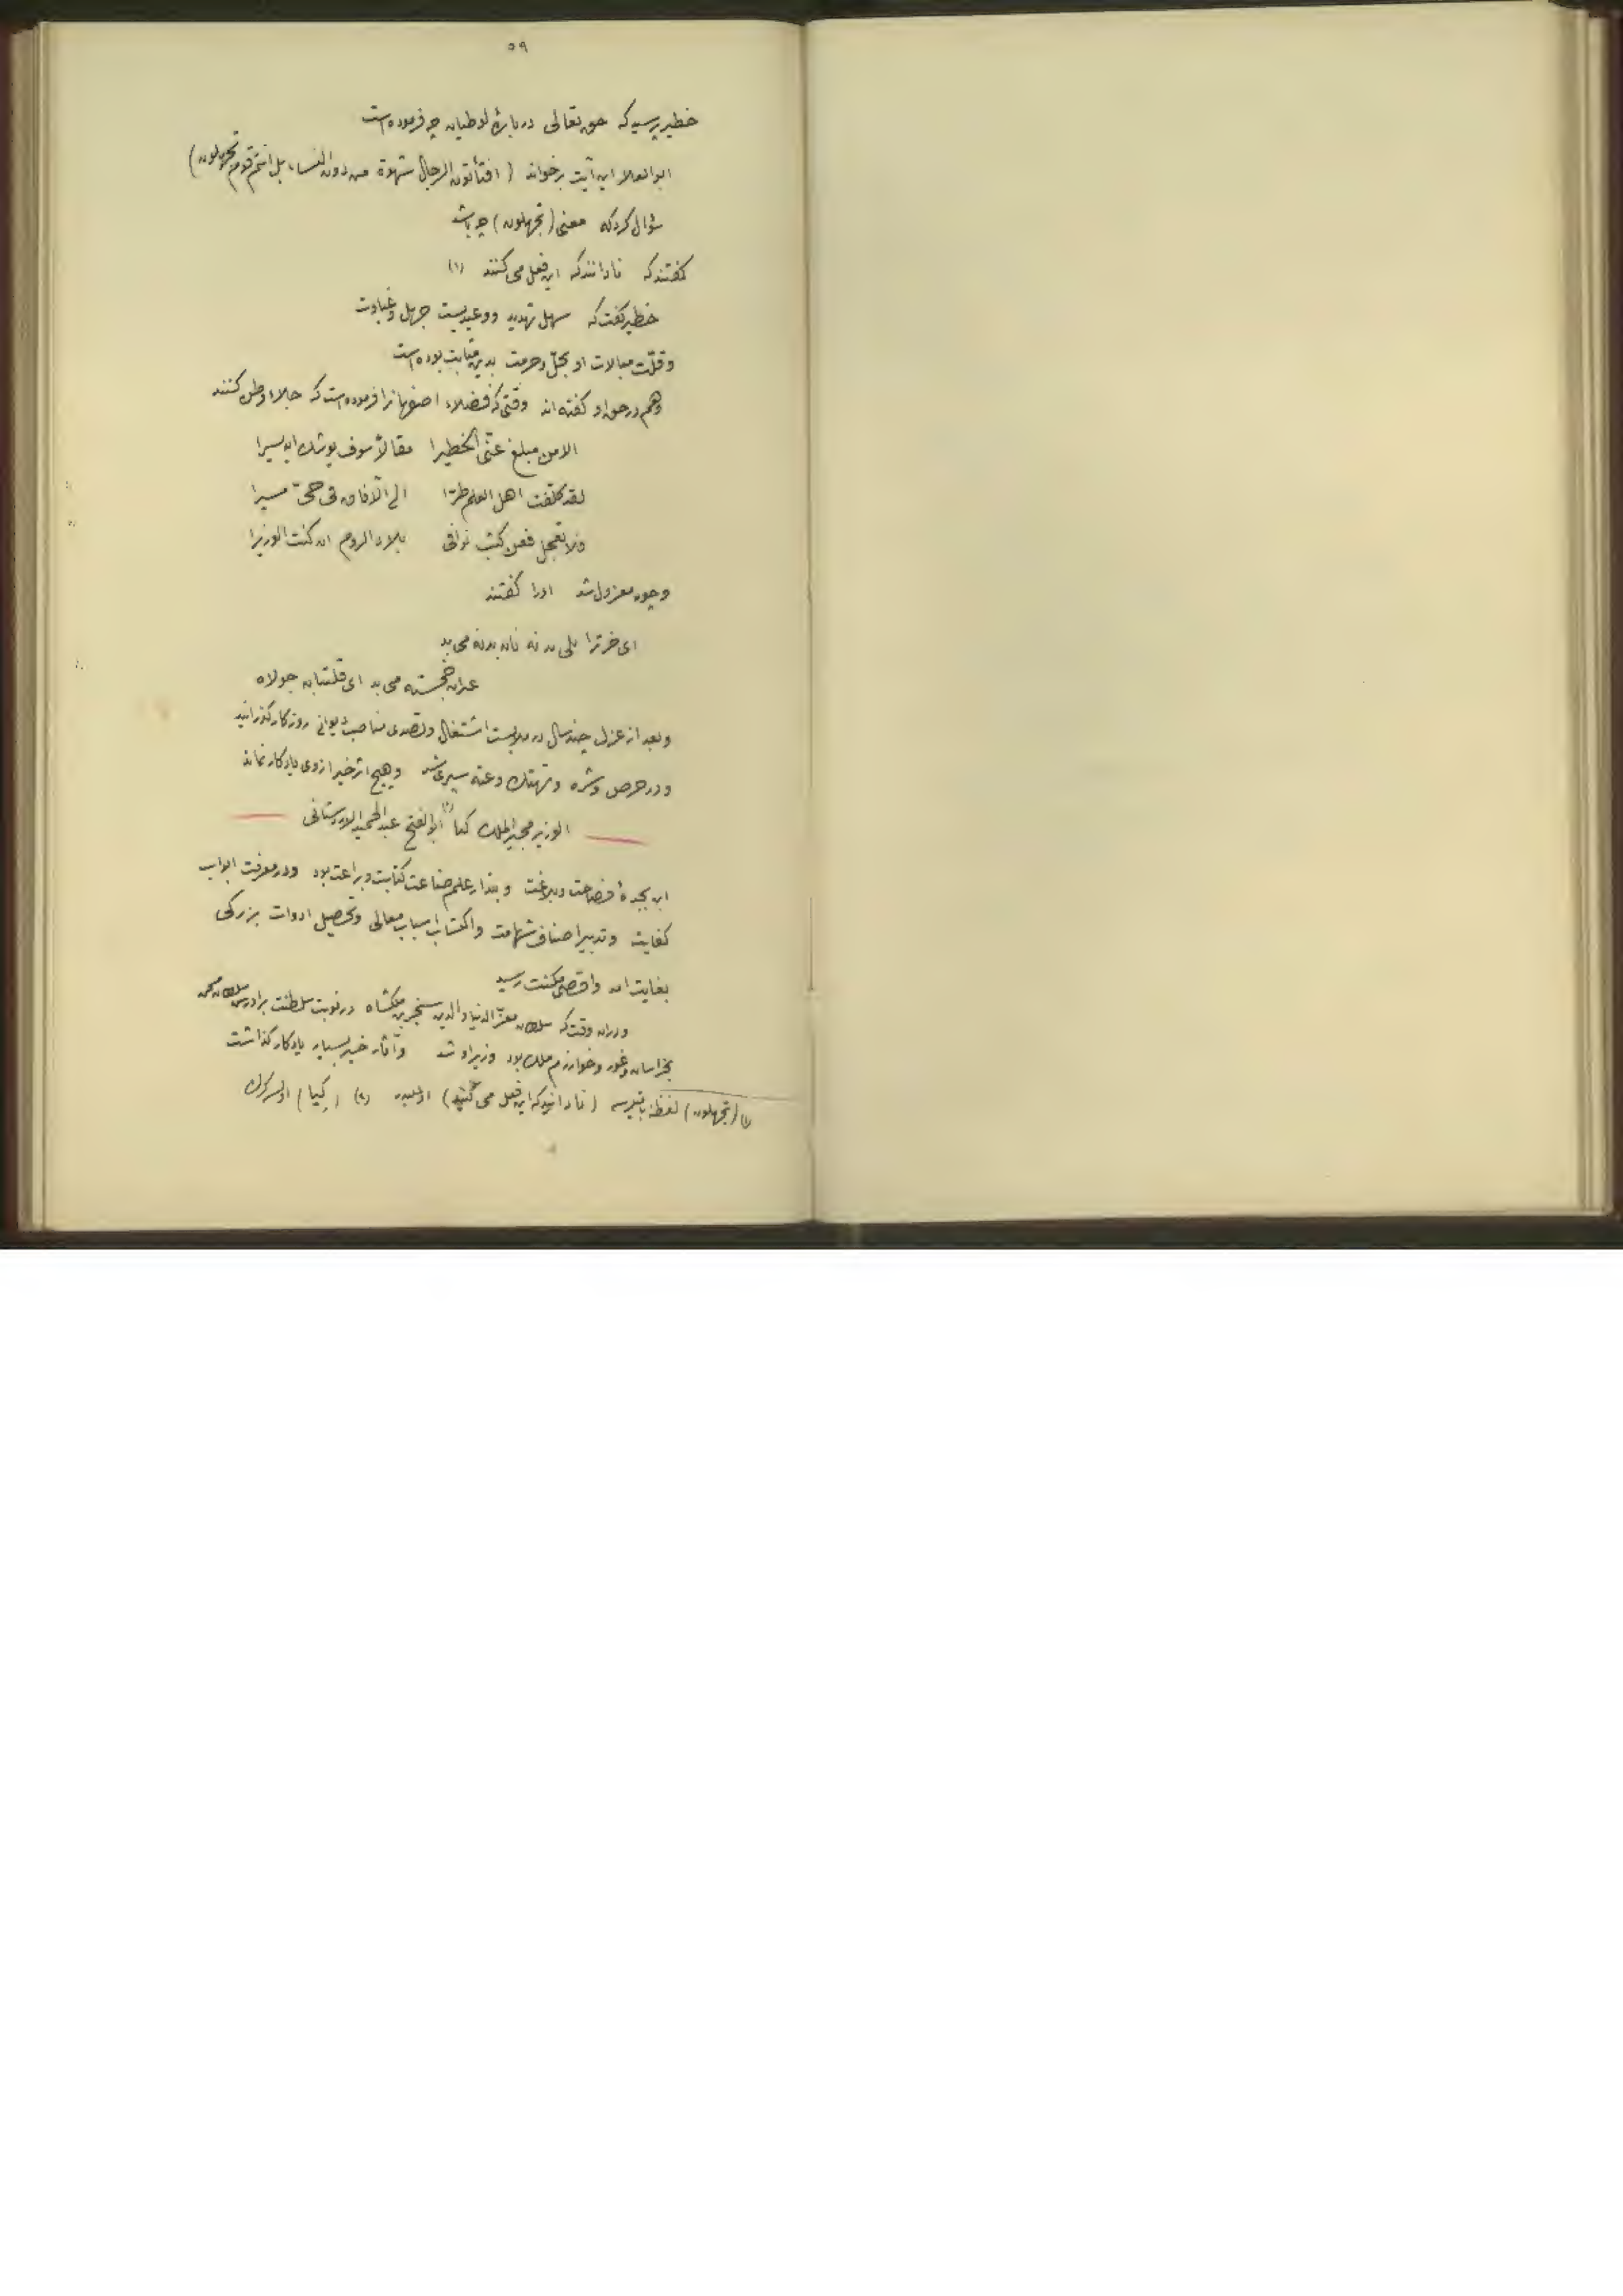 ٥٩
خطیر پرسید که حق تعالی در بارهٔ لوطیان چه فرموده است
ابوالعلا این آیت برخواند (افتأتون الرجال شهوة من دون النساء بل انتم قوم تجهلون)
سؤال کرد که معنی (تجهلون) چه باشد
گفتند که نادانند که این فعل می کنند (۱)
خطیر گفت که سهل تهدید و وعیدیست جهل و غباوت
و قلّت مبالات او بحلّ و حرمت بدین مثابت بوده است
و هم در حق او گفته اند وقتی که فضلاء اصفهانرا فرموده است که جلاء وطن کنند
الا من مبلغ عنّی الخطیرا مقالاً سوف یوشك ان یسیرا
لقد کلّفت اهل العلم طرّا الی الآفاق فی حمّی مسیرا
ولا تعجل فعن کثب نوافی بلاد الروم ان کنت الوزیرا
و چون معزول شد اورا گفتند
ای خر ترا بلی بد نه نان بد نه می بد
خجسته می بد ای قلتبان جولاه
و بعد از عزل چند سال در ملابست اشتغال و تصدی مناصب دیوانی روزکار گذرانید
و در حرص و شره و تهتك و عته سپری شد و هیچ اثر خیر از وی یادکار نماند
الوزیر مجیر الملك کیا (۲) ابو الفتح عبد الحمید الاردستانی
ابن بجدهٔ فصاحت و بلاغت و بندار علم صناعت کتابت و براعت بود و در معرفت ابواب
کفایت و تدبیر اصناف شهامت و اکتساب اسباب معالی و تحصیل ادوات بزرکی
بغایت امد و اقصی مکنت رسید
و در آن وقت که سلطان معزّ الدنیا والدین سنجر بن ملکشاه در نوبت سلطنت برادرش سلطان محمد
بخراسان و غور و خوارزم ملك بود وزیر او شد و آثار خیر بسیار یادکار گذاشت
(۱) (تجهلون) لفظنه باقیلیرسه (نادانید که این فعل می کنید) اولملیدر (۲) (کیا) اولسه کرك